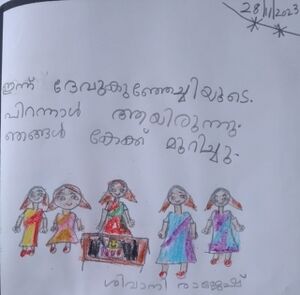 28/11/2023
ഇന്ന് ദേവുകുഞ്ഞേച്ചിയുടെ.
പിറന്നാൾ ആയിരുന്നു.
ഞങ്ങൾ കേക്ക് മുറിച്ചു.
ശിവാനി